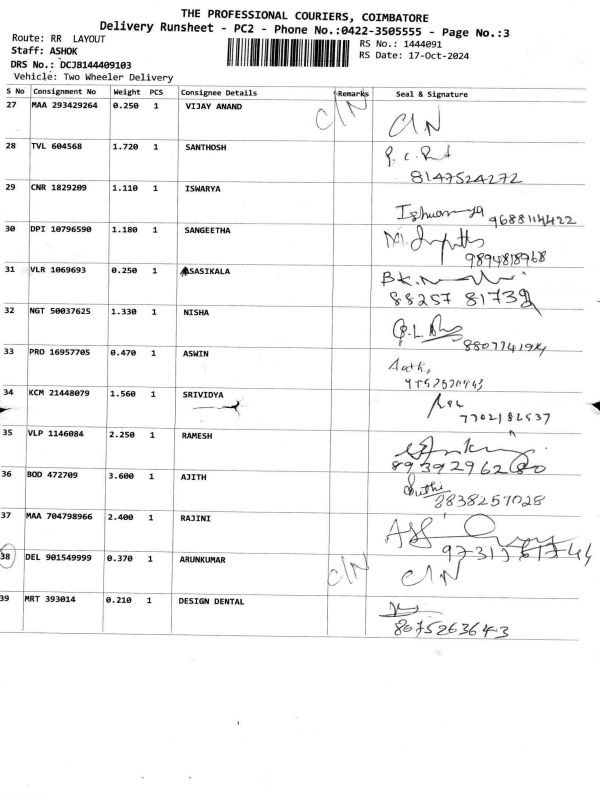 THE PROFESSIONAL COURIERS, COIMBATORE
Delivery Runsheet - PC2 - Phone No.:0422-3505555 - Page No.:3
Route: RR LAYOUT
Staff: ASHOK
DRS No.: DCJB144409103
Vehicle: Two Wheeler Delivery
RS No.: 1444091
RS Date: 17-Oct-2024
S No Consignment No Weight PCS Consignee Details Remarks Seal & Signature
27 MAA 293429264 0.250 1 VIJAY ANAND C/N C/N
28 TVL 604568 1.720 1 SANTHOSH
8147524272
29 CNR 1829209 1.110 1 ISWARYA
9688114422
30 DPI 10796590 1.180 1 SANGEETHA
9894818968
31 VLR 1069693 0.250 1 SASIKALA
88257 81739
32 NGT 50037625 1.330 1 NISHA
33 PRO 16957705 0.470 1 ASWIN
34 KCM 21448079 1.560 1 SRIVIDYA
35 VLP 1146084 2.250 1 RAMESH
36 BOD 472709 3.600 1 AJITH
37 MAA 704798966 2.400 1 RAJINI
38 DEL 901549999 0.370 1 ARUNKUMAR C/N C/N
39 MRT 393014 0.210 1 DESIGN DENTAL
8075263643